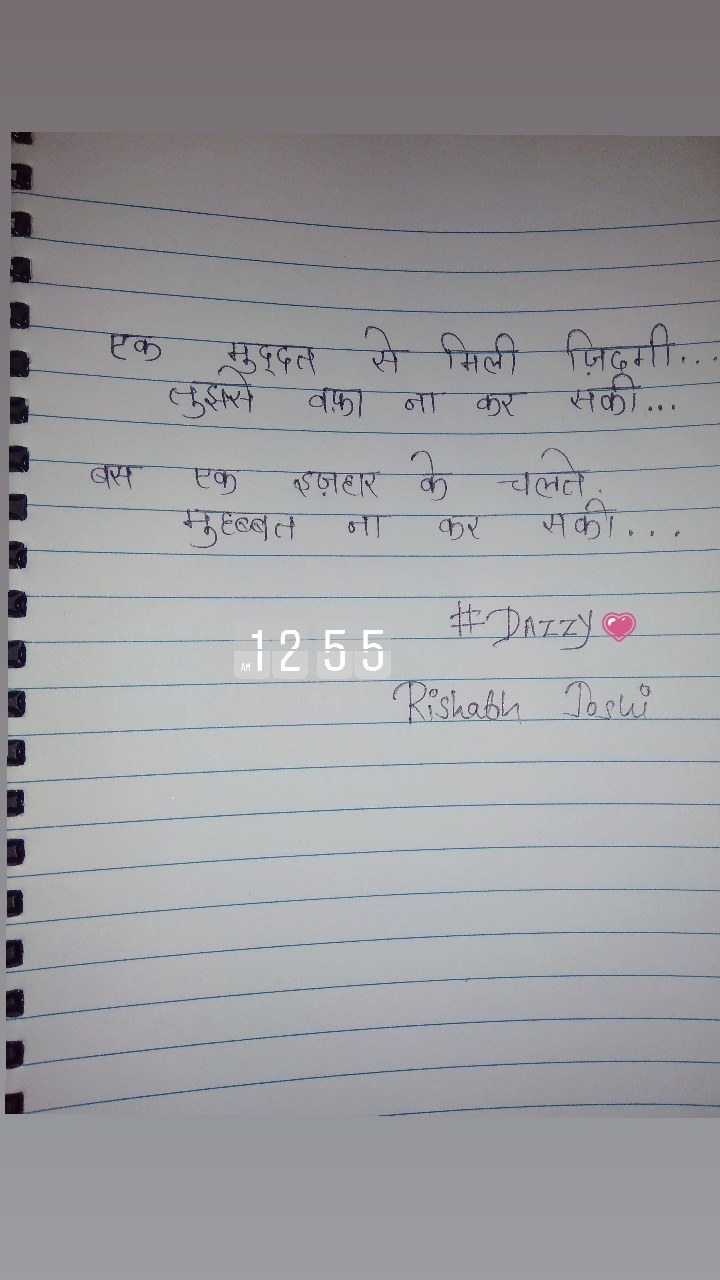 एक मुद्दत से मिली ज़िदगी...
तुझसे वफ़ा ना कर सकी...
बस एक इज़हार के चलते.
मुहब्बत ना कर सकी...
#DAZZY💗
AM 12 55
Rishabh Joshi